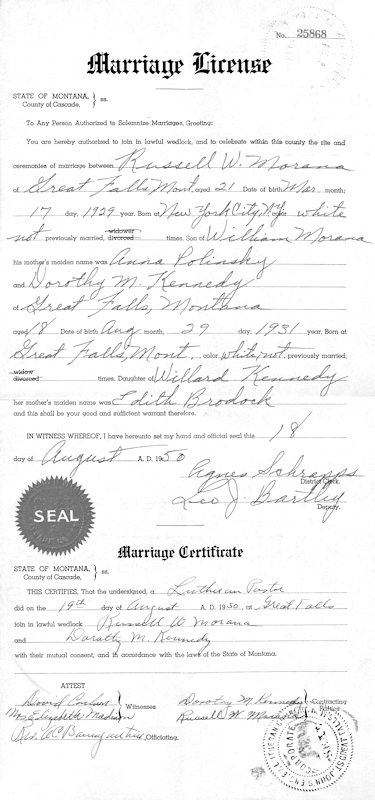 No. 25868
Marriage License
STATE OF MONTANA,
County of Cascade, } ss.
To Any Person Authorized to Solemnize Marriages, Greeting:
You are hereby authorized to join in lawful wedlock, and to celebrate within this county the rite and
ceremonies of marriage between Russell W. Morana
of Great Falls, Mont. aged 21 Date of birth Mar. month;
17 day, 1929 year. Born at New York City, N.Y. color white
not previously married, widower divorced times. Son of William Morana
his mother's maiden name was Anna Polinsky
and Dorothy M. Kennedy
of Great Falls, Montana
aged 18 Date of birth Aug month, 29 day, 1931 year. Born at
Great Falls, Mont. color white, not, previously married,
widow divorced times. Daughter of Willard Kennedy
her mother's maiden name was Edith Brodock
and this shall be your good and sufficient warrant therefore.
IN WITNESS WHEREOF, I have hereunto set my hand and official seal this 18
day of August A. D. 1950
Agnes Schrapps
District Clerk.
Leo J. Bartley
Deputy.
SEAL
Marriage Certificate
STATE OF MONTANA,
County of Cascade, } ss.
THIS CERTIFIES, That the undersigned, a Lutheran Pastor
did on the 19th day of August A. D. 1950, at Great Falls
join in lawful wedlock Russell W Morana
and Dorothy M. Kennedy
with their mutual consent, and in accordance with the laws of the State of Montana.
ATTEST
David
Mrs Elizabeth Madison } Witnesses
Rev. Officiating.
Dorothy M. Kennedy
Russell W. Morana } Contracting Parties